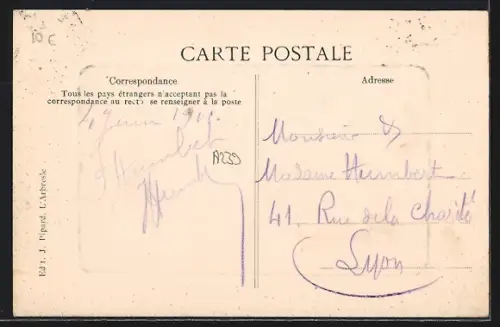 10 €
CARTE POSTALE
Correspondance
Tous les pays étrangers n'acceptant pas la
correspondance au recto se renseigner à la poste
A239
Humbert
Adresse
Monsieur &
Madame Humbert
41 Rue de la Charité
Lyon
Edit. J. Pipard, L'Arbresle